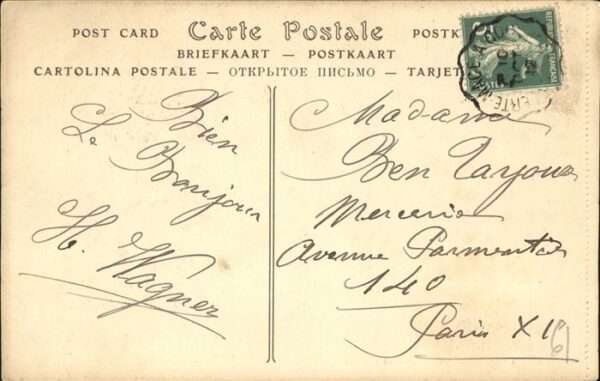 POST CARD Carte Postale POSTK
BRIEFKAART — POSTKAART
CARTOLINA POSTALE — ОТКРЫТОЕ ПИСЬМО — TARJET
Bien
Le Bonjour
H. Wagner
Madame
Ben Tayoux
Mercerie
Avenue Parmentier
140
Paris XI